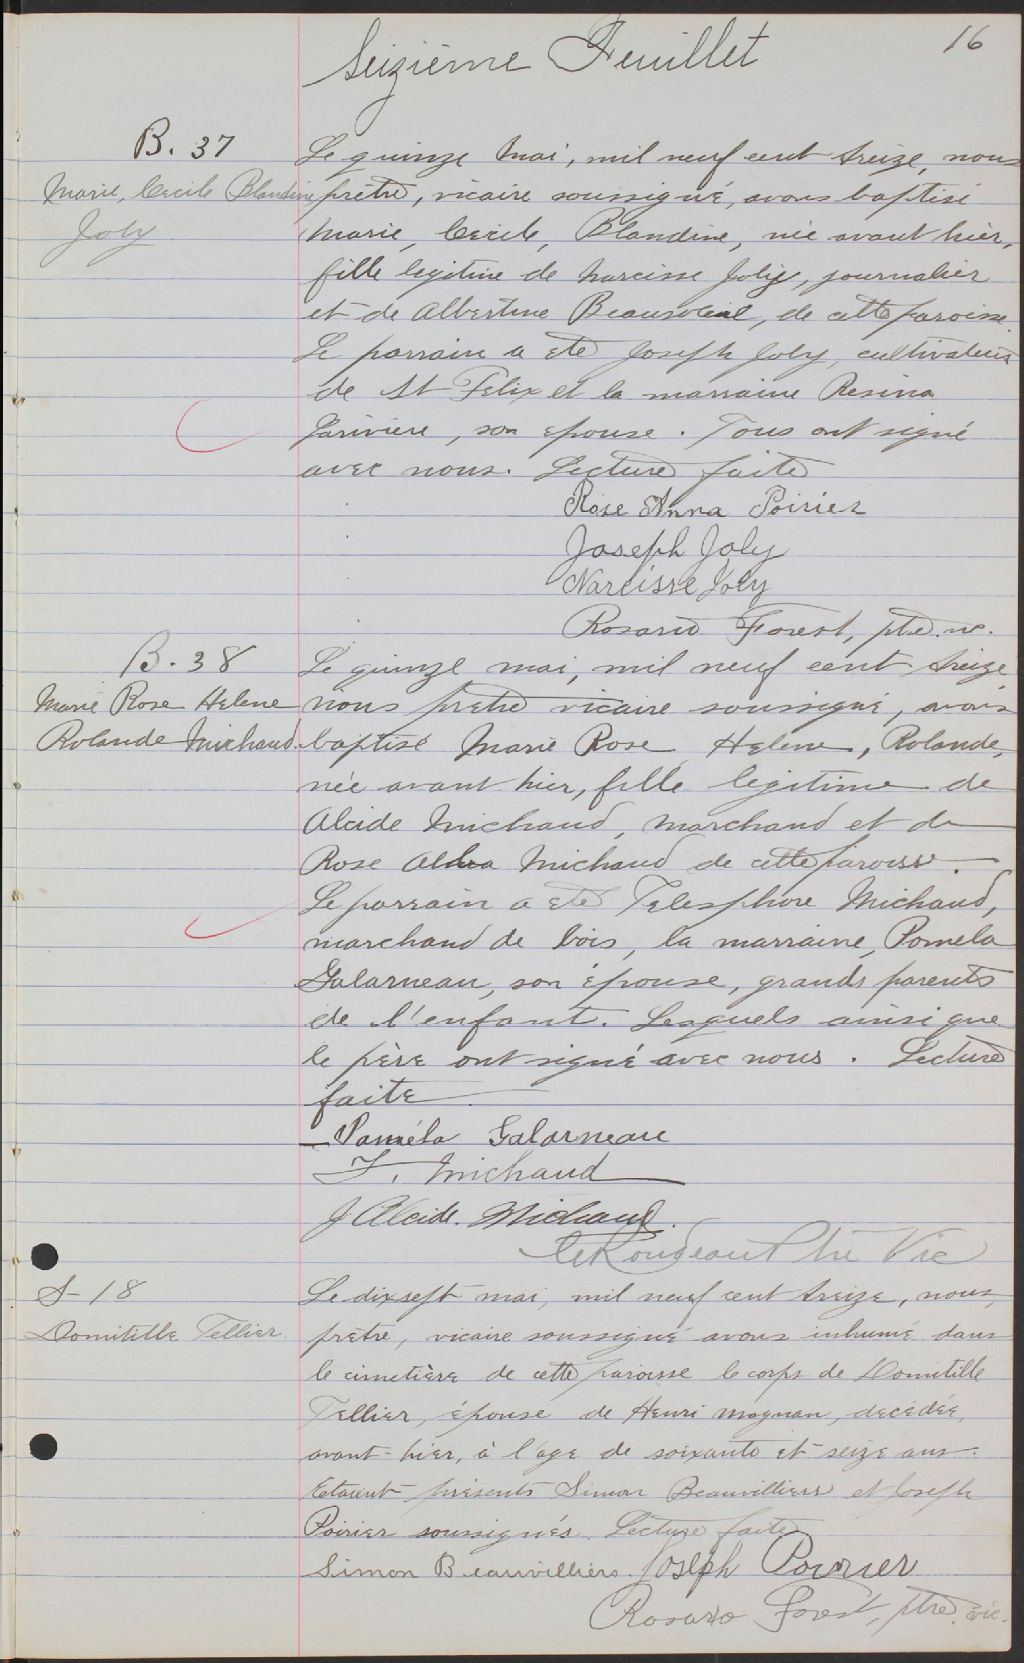 16
Seizième Feuillet
B. 37
Marie, Cecile Blandine
Joly
Le quinze Mai, mil neuf cent treize, nous
prêtre, vicaire soussigné, avons baptisé
Marie, Cecile, Blandine, née avant hier,
fille legitime de Narcisse Joly, journalier
et de Albertine Beausoleil, de cette paroisse.
Le parrain a été Joseph Joly, cultivateur
de St Felix et la marraine Resina
Lariviere, son epouse. Tous ont signé
avec nous. Lecture faite
Rose Anna Poirier
Joseph Joly
Narcisse Joly
Rosario Forest, ptre. vic.
B. 38
Marie Rose Helene
Rolande Michaud.
Le quinze mai, mil neuf cent treize
nous prêtre vicaire soussigné, avons
baptisé Marie Rose Helene, Rolande,
née avant hier, fille legitime de
Alcide Michaud, marchand et de
Rose Alba Michaud de cette paroisse.
Le parrain a été Telesphore Michaud,
marchand de bois, la marraine, Pomela
Galarneau, son épouse, grands parents
de l'enfant. Lesquels ainsi que
le père ont signé avec nous. Lecture
faite
Paméla Galarneau
T. Michaud
J. Alcide. Michaud.
Rondeau Ptre Vic
S-18
Domitille Tellier.
Le dix sept mai, mil neuf cent treize, nous,
prêtre, vicaire soussigné avons inhumé dans
le cimetière de cette paroisse le corps de Domitille
Tellier, épouse de Henri Magnan, decédée,
avant-hier, à l'age de soixante et seize ans.
Etaient présents Simon Beauvilliers et Joseph
Poirier soussignés. Lecture faite
Simon Beauvilliers. Joseph Poirier
Rosario Forest, ptre. vic.